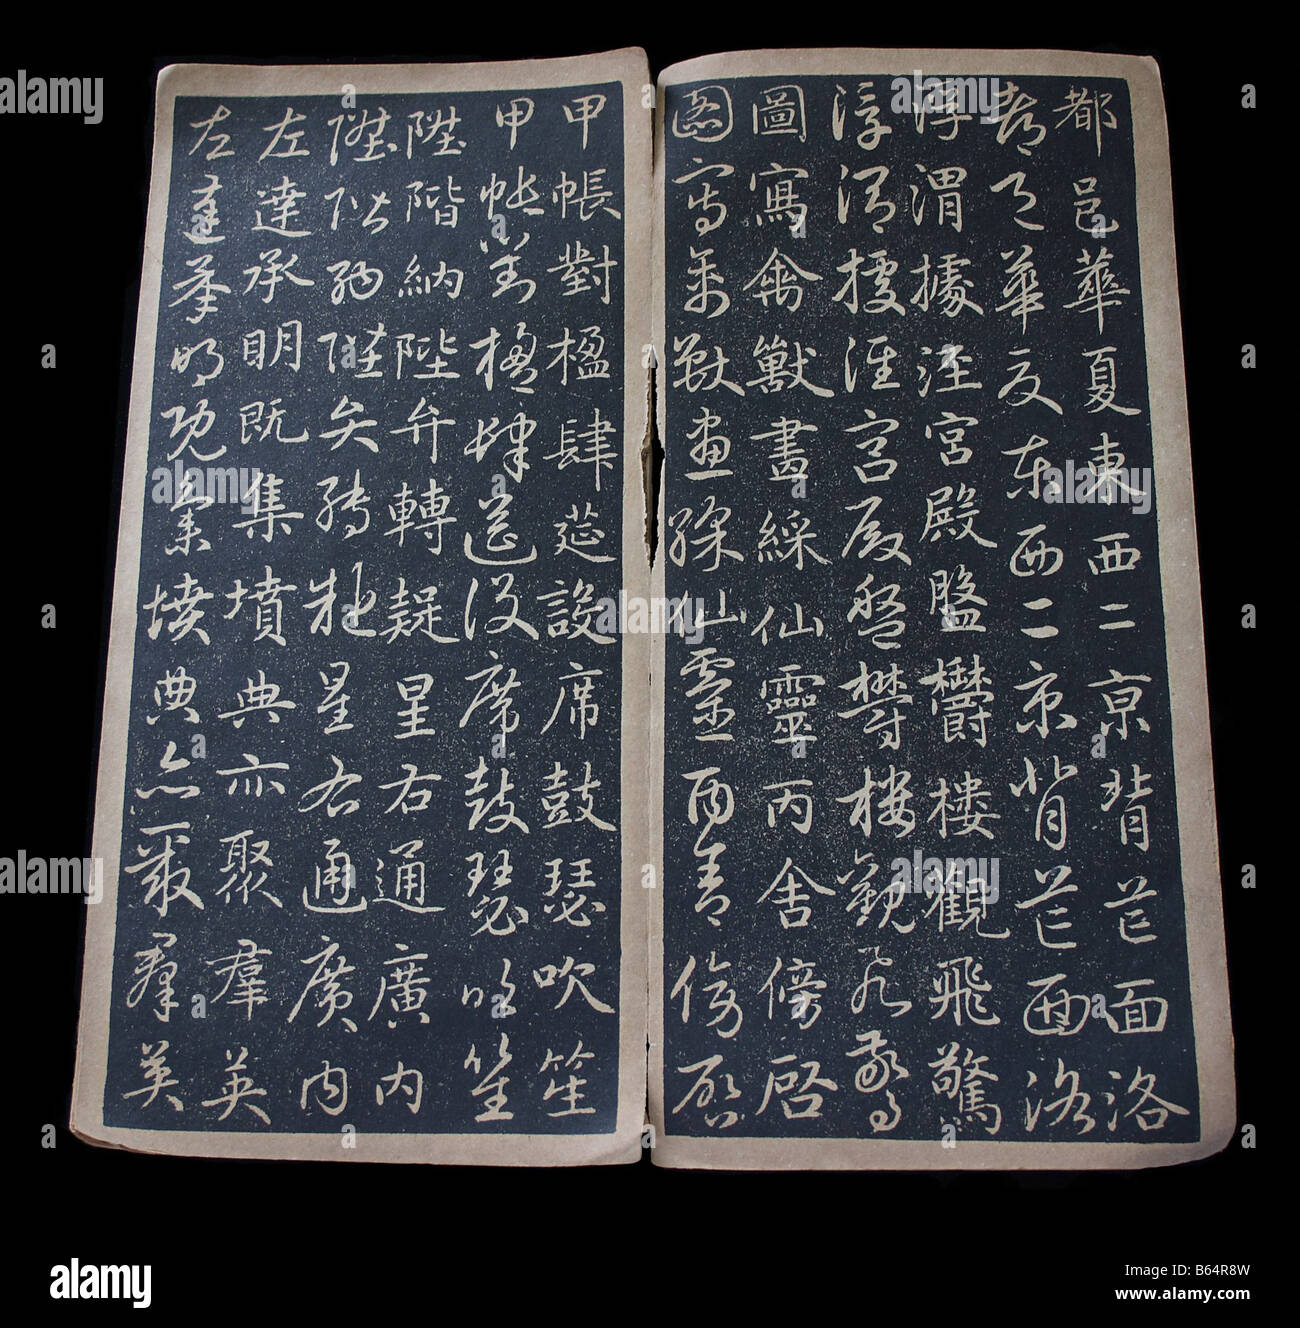 都邑華夏東西二京背芒面洛
都邑華夏東西二京背芒面洛
浮渭據涇宮殿盤欝樓觀飛驚
浮渭據涇宮殿盤欝樓觀飛驚
圖寫禽獸畫綵仙靈丙舍傍啓
圖寫禽獸畫綵仙靈丙舍傍啓
甲帳對楹肆莚設席鼓瑟吹笙
甲帳對楹肆莚設席鼓瑟吹笙
陞階納陛弁轉疑星右通廣内
陞階納陛弁轉疑星右通廣内
左達承明既集墳典亦聚羣英
左達承明既集墳典亦聚羣英
alamy
B64R8W
www.alamy.com